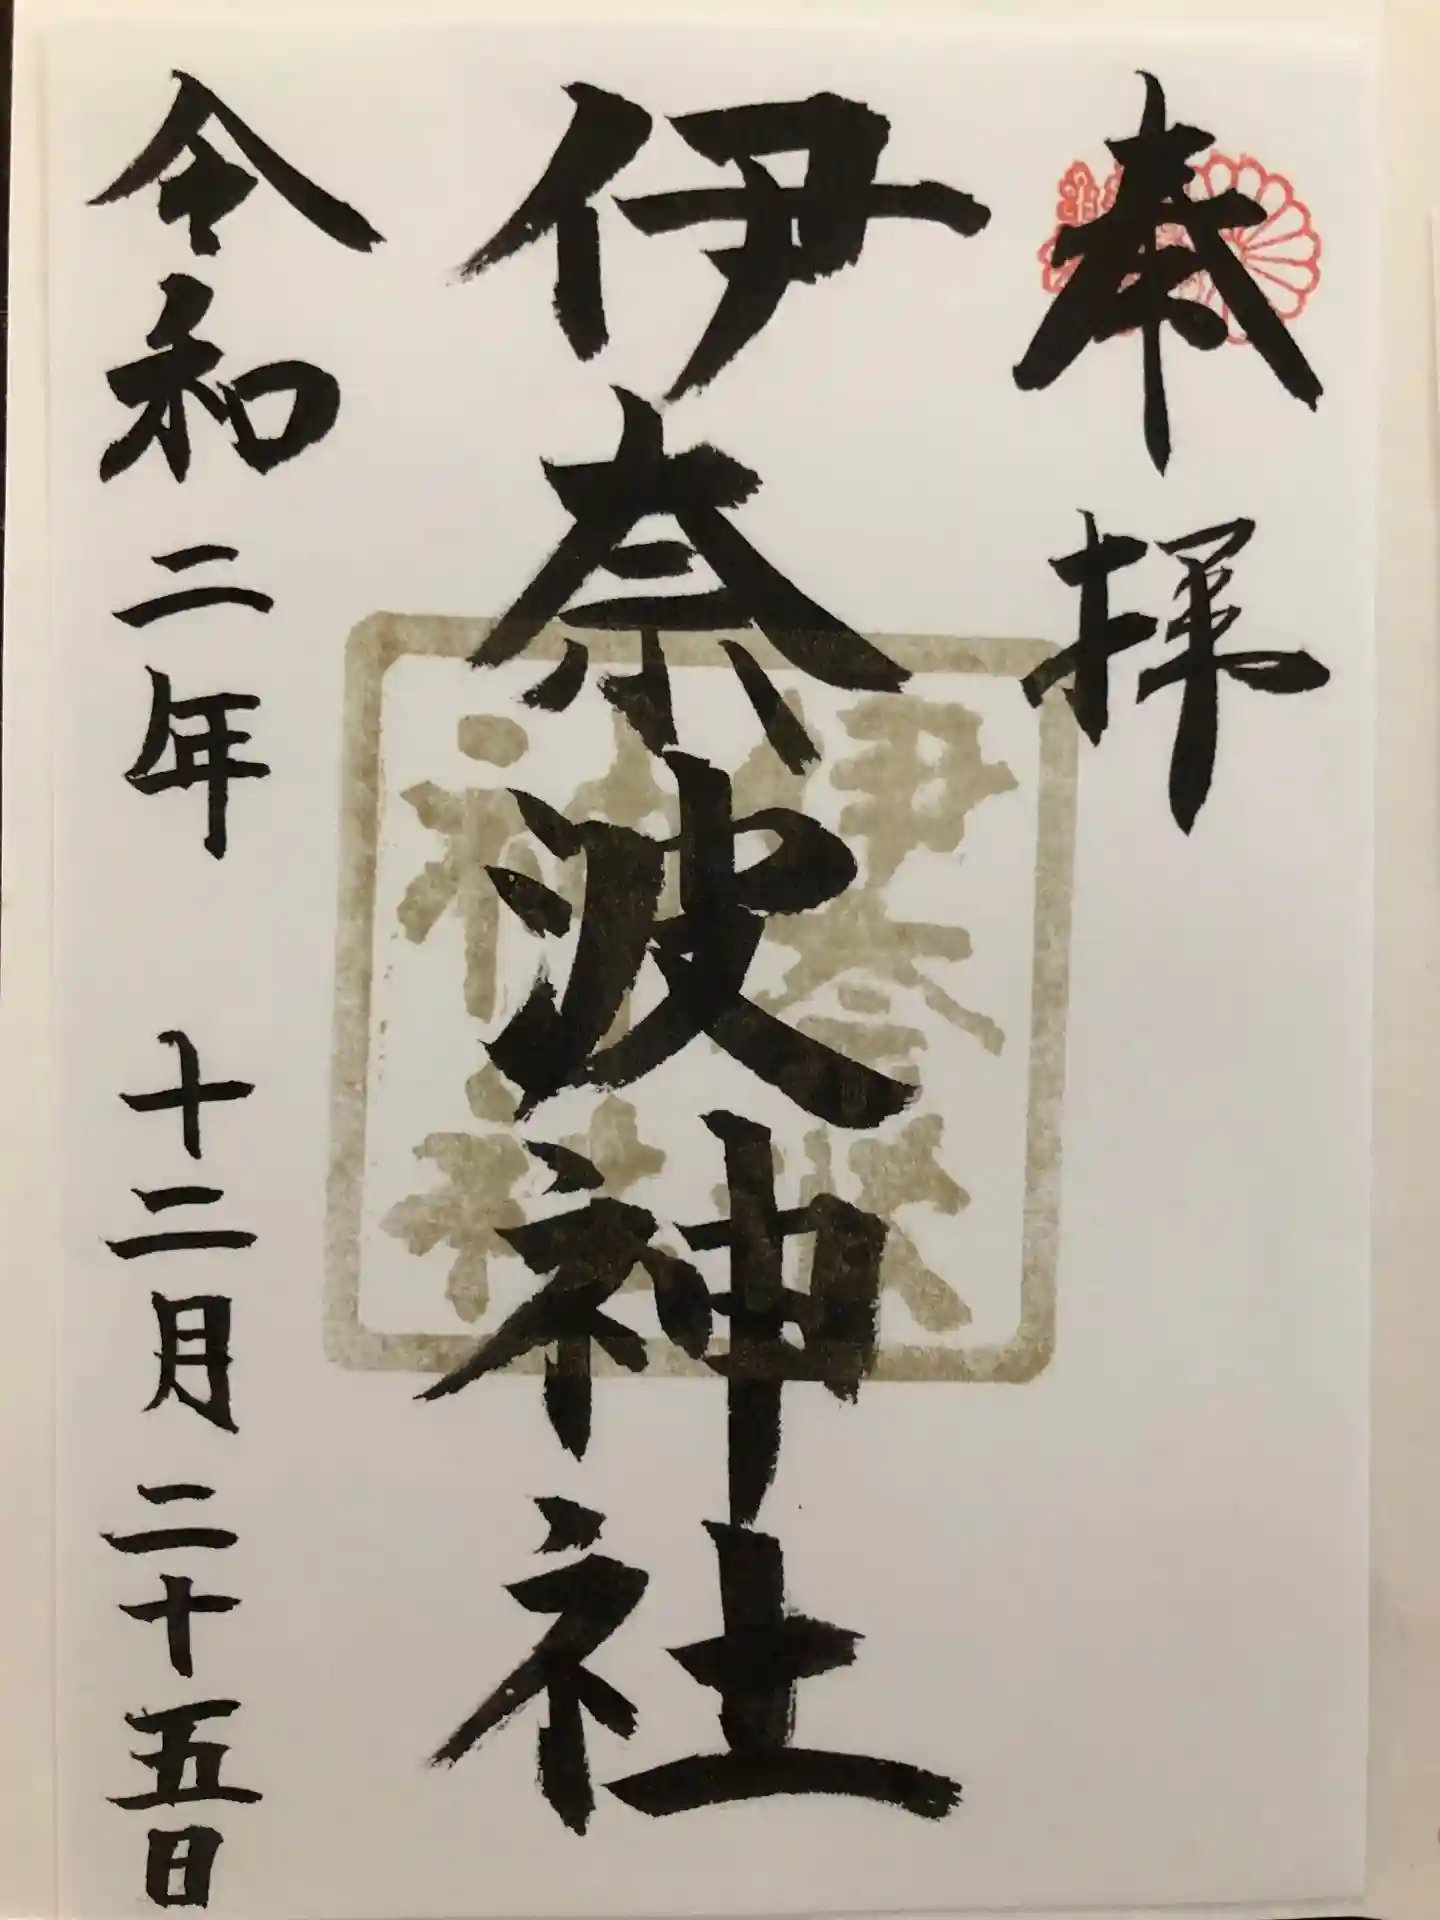 奉拝
伊奈波神社
伊奈波
神社
令和二年 十二月二十五日